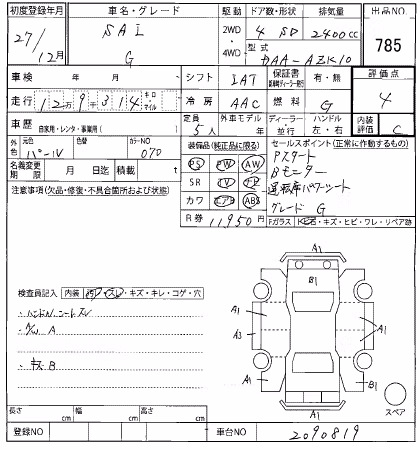 初度登録年月
車名・グレード
駆動
ドア数・形状
排気量
出品NO
27/12月
SAI
G
2WD
・
4WD
4 SD
2400cc
型式
DAA-AZK10
785
車検 年 月
シフト
IAT
保証書
有・無
評価点
走行
12万9千314
キロ
マイル
冷房
AAC
燃料
G
4
車歴
自家用・レンタ・事業用( )
定員
5人
外車モデル
年
ディーラー
並行
ハンドル
左・右
内装評価
C
外色
元色
パール
色替
カラーNO
070
装備品(純正品に限る)
PS PW AW
SR TV ナビ
カワ エアB ABS
R券 11,950円
セールスポイント(正常に作動するもの)
Pスタート
Bモニター
運転席パワーシート
グレード G
名義変更期限
月 日迄
積載
t
注意事項(欠品・修復・不具合箇所および状態)
Fガラス
トビ石・キズ・ヒビ・ワレ・リペア跡
検査員記入
内装
汚れ・スレ・キズ・キレ・コゲ・穴
・ハンドル シートスレ
A
・キズB
A1
B1
A1
A3
A1
A1
A1
B1
A1
スペア
長さ cm
幅 cm
高さ cm
登録NO
車台NO
2090819